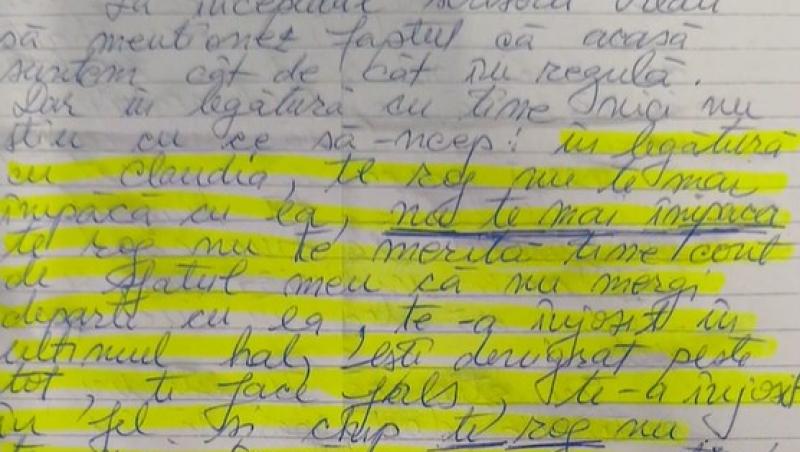 La începutul scrisorii vreau
să mentionez faptul că acasă
suntem cât de cât în regulă.
Dar în legătură cu tine nici nu
știu cu ce să-ncep! în legătură
cu Claudia, te rog nu te mai
împăca cu ea, nu te mai împaca
te rog nu te merită tine cont
de sfatul meu că nu mergi
departe cu ea, te-a înjosit în
ultimul hal, ești denigrat peste
tot, te face fals, te-a înjosit
în fel și chip te rog nu